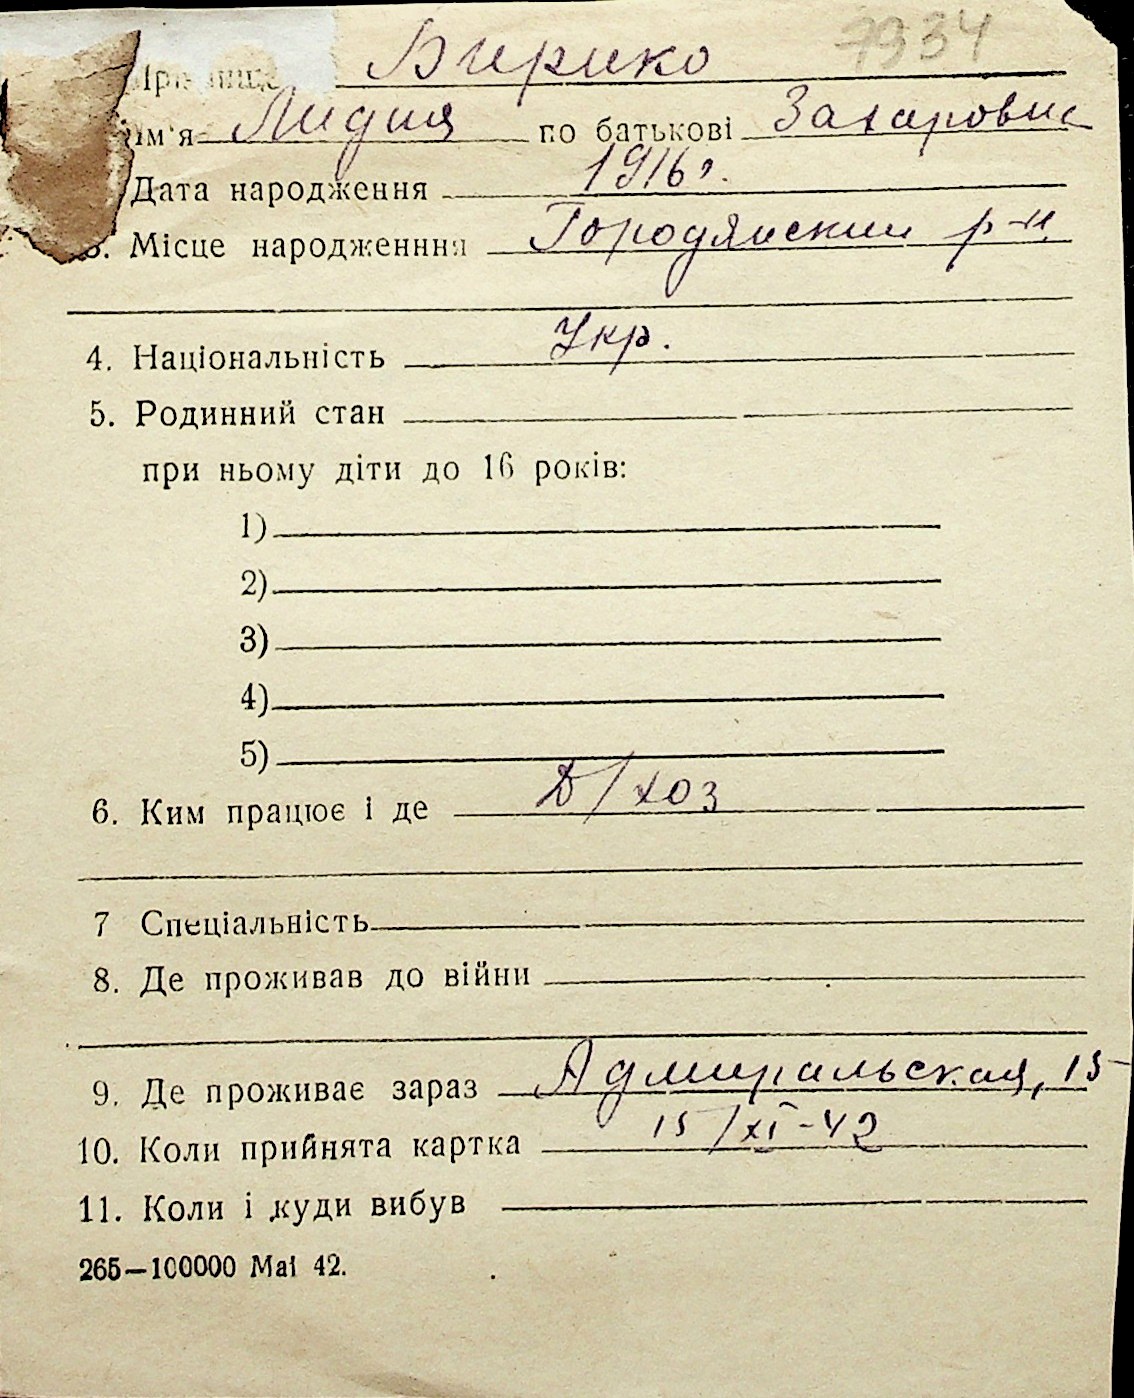 7934
Прізвище Бирико
ім'я Лидия по батькові Захаровна
Дата народження 1916 г.
3. Місце народженння Городянский р-н
4. Національність Укр.
5. Родинний стан
при ньому діти до 16 років:
1)
2)
3)
4)
5)
6. Ким працює і де Д/хоз
7 Спеціальність
8. Де проживав до війни
9. Де проживає зараз Адмиральская, 15
10. Коли прийнята картка 15/XI-42
11. Коли і куди вибув
265—100000 Mai 42.